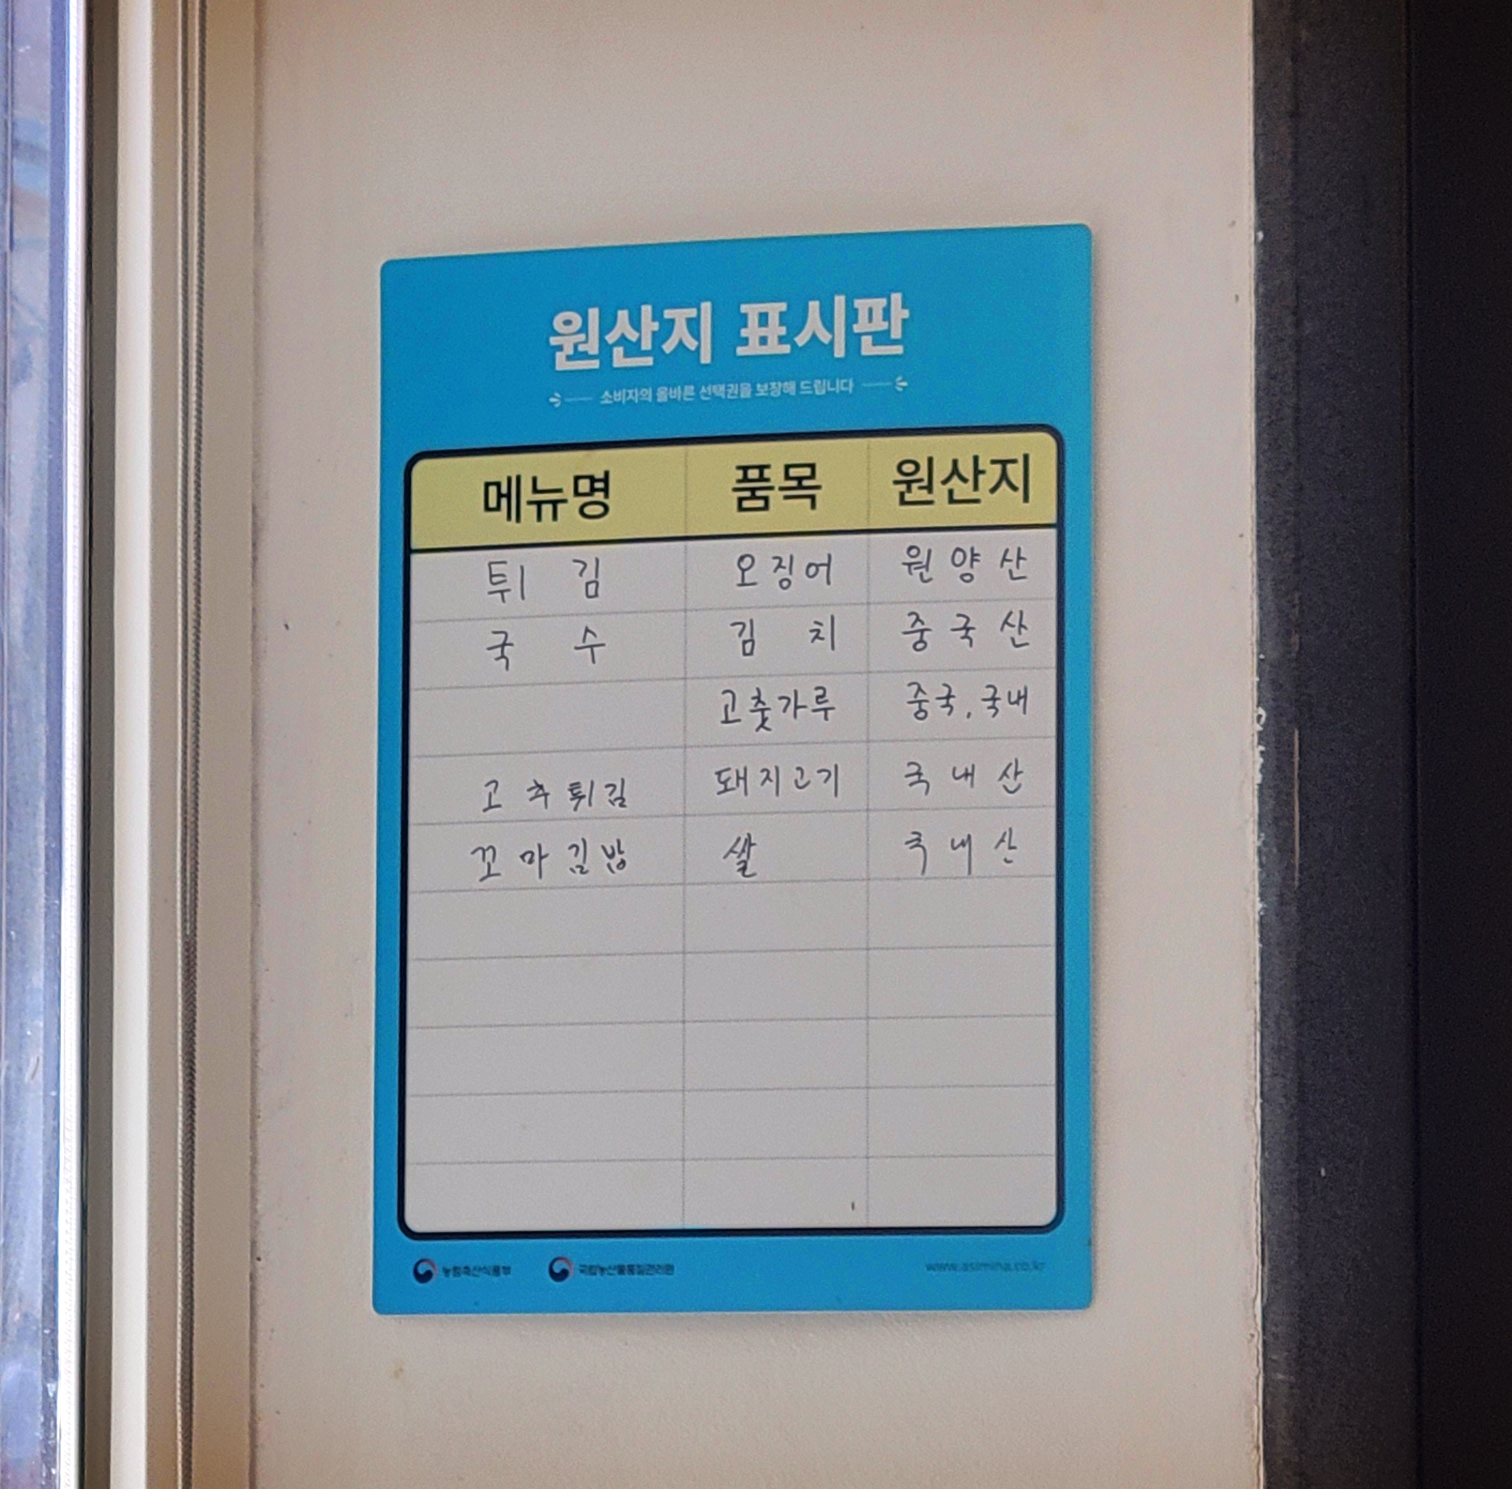 원산지 표시판
소비자의 올바른 선택권을 보장해 드립니다
메뉴명 품목 원산지
튀김 오징어 원양산
국수 김치 중국산
고춧가루 중국,국내
고추튀김 돼지고기 국내산
꼬마김밥 쌀 국내산
농림축산식품부 국립농산물품질관리원